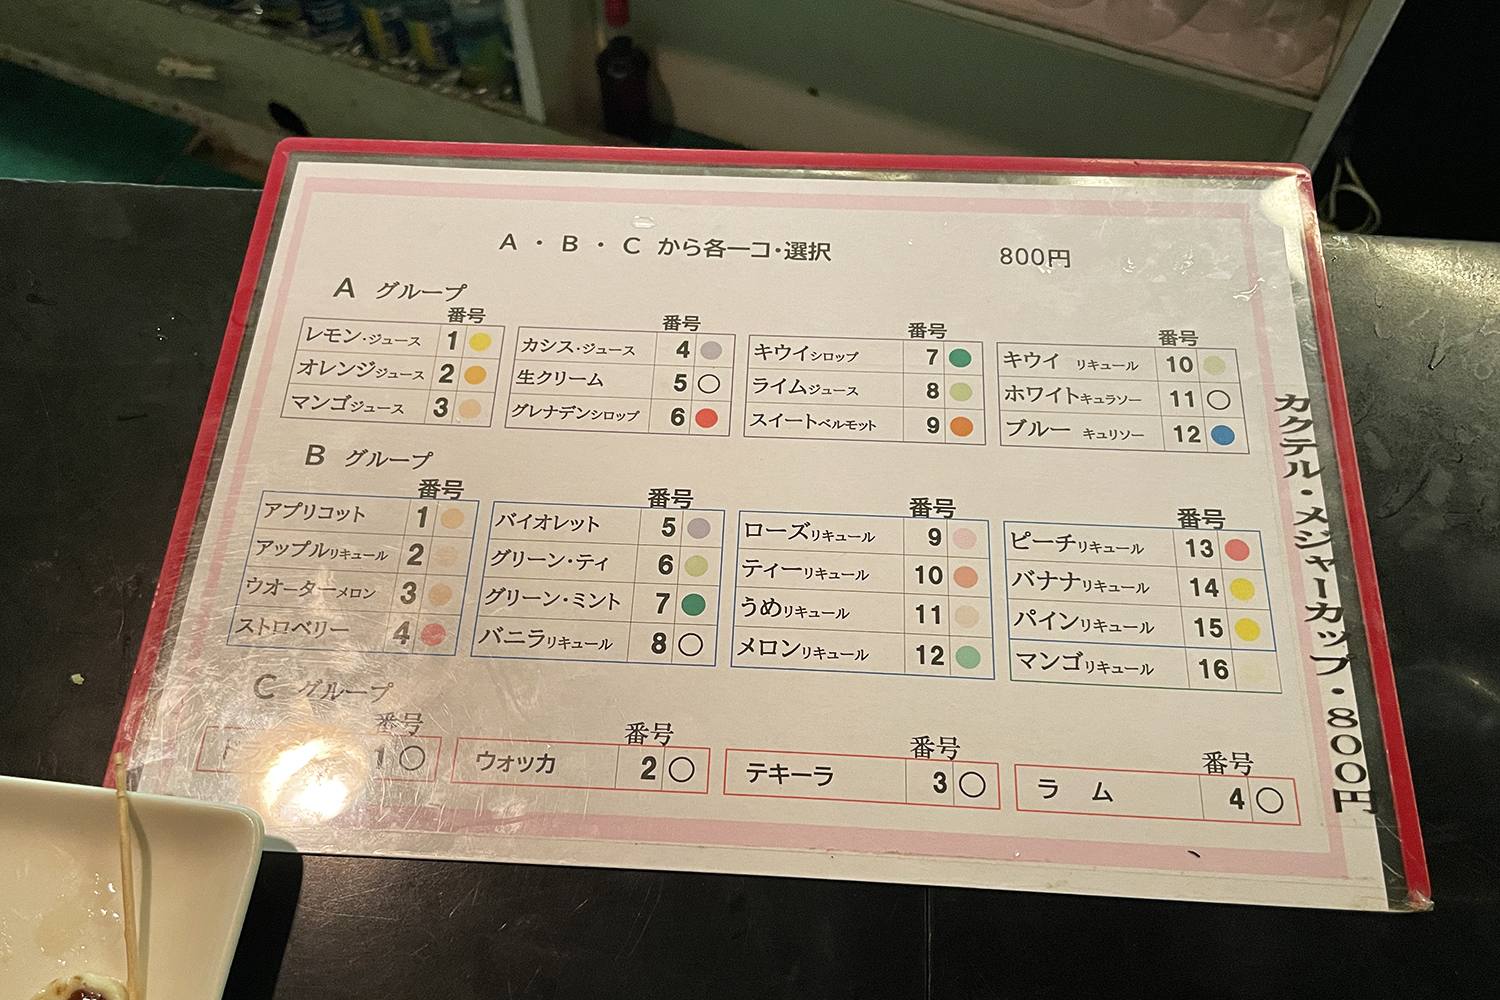 A・B・C から各一コ・選択 800円
A グループ
番号 番号 番号 番号
レモン・ジュース 1 カシス・ジュース 4 キウイシロップ 7 キウイ リキュール 10
オレンジジュース 2 生クリーム 5 ライムジュース 8 ホワイトキュラソー 11
マンゴジュース 3 グレナデンシロップ 6 スイートベルモット 9 ブルー キュリソー 12
B グループ
番号 番号 番号 番号
アプリコット 1 バイオレット 5 ローズリキュール 9 ピーチリキュール 13
アップルリキュール 2 グリーン・ティ 6 ティーリキュール 10 バナナリキュール 14
ウオーターメロン 3 グリーン・ミント 7 うめリキュール 11 パインリキュール 15
ストロベリー 4 バニラリキュール 8 メロンリキュール 12 マンゴリキュール 16
C グループ
番号 番号 番号 番号
1 ウォッカ 2 テキーラ 3 ラム 4
カクテル・メジャーカップ・800円